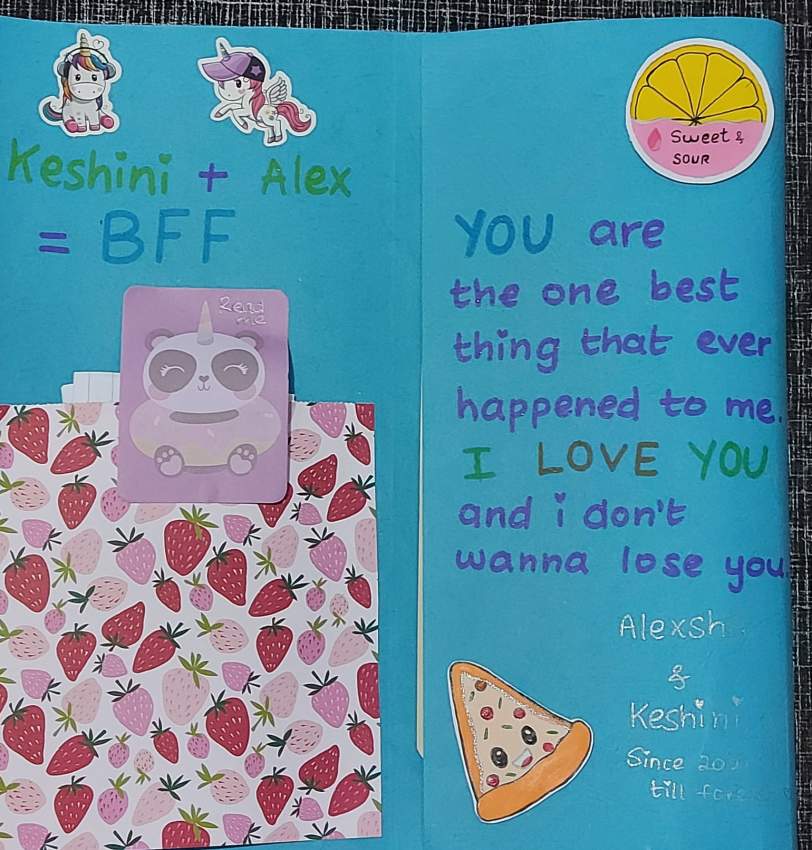 Keshini + Alex
= BFF
Read
me
Sweet &
SOUR
YOU are
the one best
thing that ever
happened to me.
I LOVE YOU
and i don't
wanna lose you
&
Keshini
Since
till